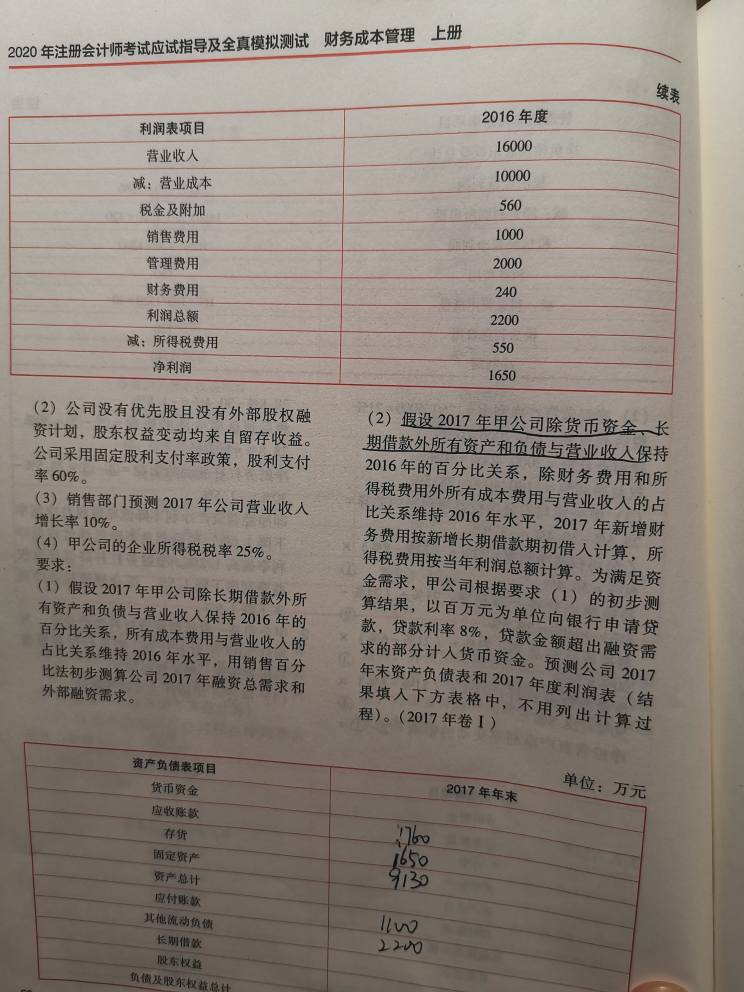 2020年注册会计师考试应试指导及全真模拟测试 财务成本管理 上册
续表
利润表项目 2016年度
营业收入 16000
减：营业成本 10000
税金及附加 560
销售费用 1000
管理费用 2000
财务费用 240
利润总额 2200
减：所得税费用 550
净利润 1650
（2）公司没有优先股且没有外部股权融
资计划，股东权益变动均来自留存收益。
公司采用固定股利支付率政策，股利支付
率60%。
（3）销售部门预测2017年公司营业收入
增长率10%。
（4）甲公司的企业所得税税率25%。
要求：
（1）假设2017年甲公司除长期借款外所
有资产和负债与营业收入保持2016年的
百分比关系，所有成本费用与营业收入的
占比关系维持2016年水平，用销售百分
比法初步测算公司2017年融资总需求和
外部融资需求。
（2）假设2017年甲公司除货币资金、长
期借款外所有资产和负债与营业收入保持
2016年的百分比关系，除财务费用和所
得税费用外所有成本费用与营业收入的占
比关系维持2016年水平，2017年新增财
务费用按新增长期借款期初借入计算，所
得税费用按当年利润总额计算。为满足资
金需求，甲公司根据要求（1）的初步测
算结果，以百万元为单位向银行申请贷
款，贷款利率8%，贷款金额超出融资需
求的部分计入货币资金。预测公司2017
年末资产负债表和2017年度利润表（结
果填入下方表格中，不用列出计算过
程）。（2017年卷Ⅰ）
单位：万元
资产负债表项目 2017年年末
货币资金
应收账款
存货 1760
固定资产 1650
资产总计 9130
应付账款
其他流动负债 1100
长期借款 2200
股东权益
负债及股东权益总计